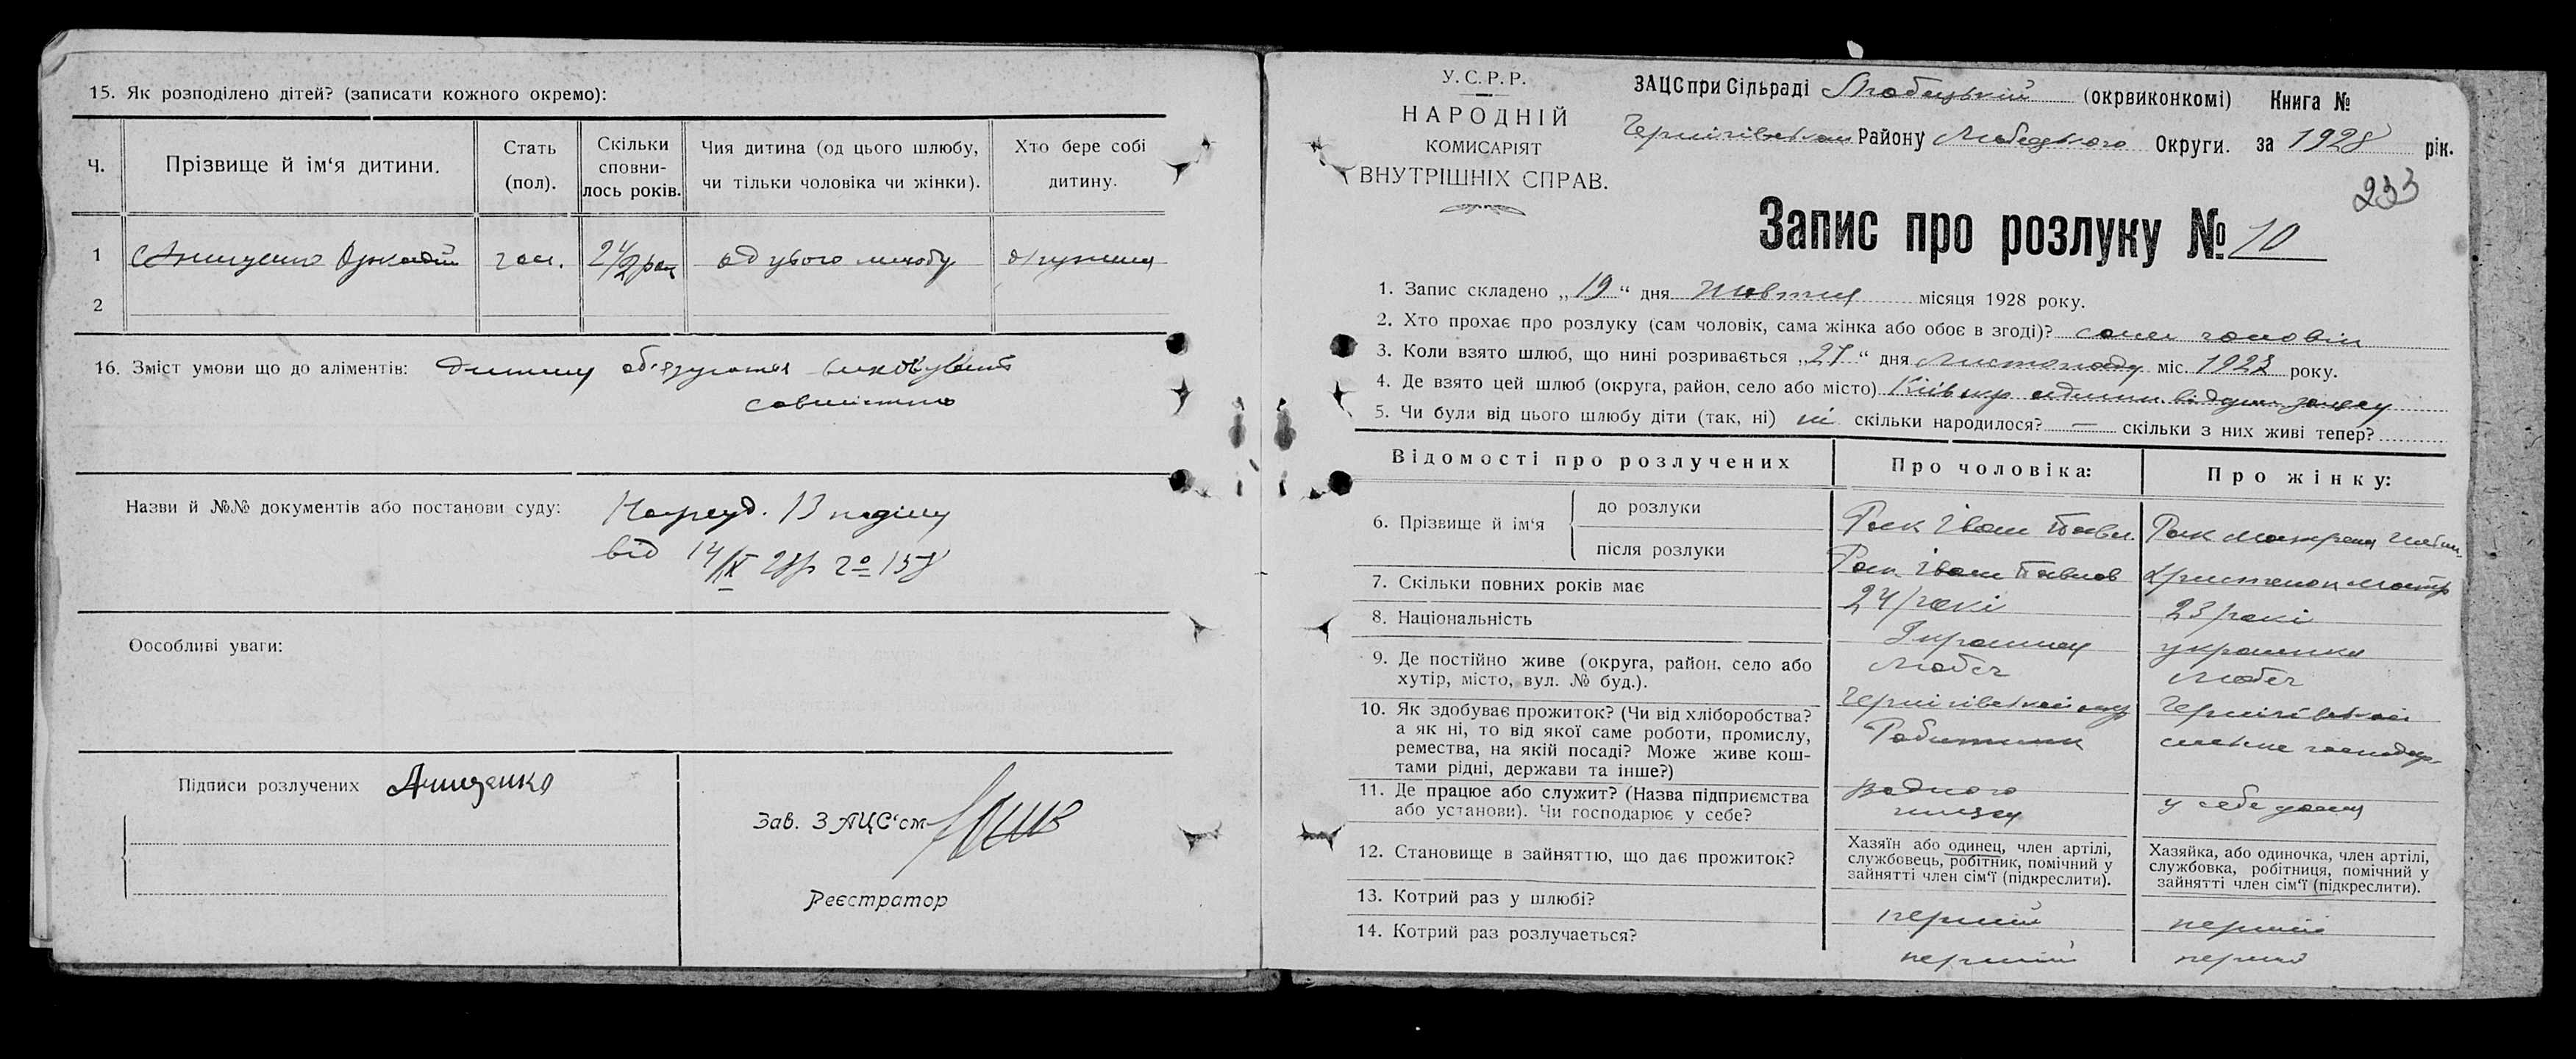 15. Як розподілено дітей? (записати кожного окремо):
Ч.
Прізвище й ім‘я дитини.
Стать
(пол).
Скільки
сповни-
лось років.
Чия дитина (од цього шлюбу,
чи тільки чоловіка чи жінки).
Хто бере собі
дитину.
1
Анищенко
чол.
од цього шлюбу
дружина
2
16. Зміст умови що до аліментів: дитину
совместно
Назви й №№ документів або постанови суду:
від 14/IX 28р
Оособливі уваги:
Підписи розлучених Анищенко
Зав. ЗАЦС‘ом
Реєстратор
У.С.Р.Р.
НАРОДНІЙ
КОМИСАРІЯТ
ВНУТРІШНІХ СПРАВ.
ЗАЦС при Сільраді Любецькій (окрвиконкомі) Книга №
Району Любецького Округи. за 1928 рік.
233
Запис про розлуку № 10
1. Запис складено „19“ дня жовтня місяця 1928 року.
2. Хто прохає про розлуку (сам чоловік, сама жінка або обоє в згоді)? сам чоловік
3. Коли взято шлюб, що нині розривається „27“ дня листопаду міс. року.
4. Де взято цей шлюб (округа, район, село або місто)
5. Чи були від цього шлюбу діти (так, ні) ні скільки народилося? — скільки з них живі тепер?
Відомості про розлучених
Про чоловіка:
Про жінку:
6. Прізвище й ім‘я
до розлуки
Рак Іван Павл.
Рак
після розлуки
Рак Іван Павлов
7. Скільки повних років має
24 рокі
23 рокі
8. Національність
Украинец
украинка
9. Де постійно живе (округа, район, село або
хутір, місто, вул. № буд.).
Любеч
Любеч
10. Як здобуває прожиток? (Чи від хліборобства?
а як ні, то від якої саме роботи, промислу,
ремества, на якій посаді? Може живе кош-
тами рідні, держави та інше?)
Робитник
11. Де працює або служит? (Назва підприємства
або установи). Чи господарює у себе?
у себе дома
12. Становище в зайняттю, що дає прожиток?
Хазяїн або одинец, член артілі,
службовець, робітник, помічний у
зайнятті член сім‘ї (підкреслити).
Хазяйка, або одиночка, член артілі,
службовка, робітниця, помічний у
зайнятті член сім‘ї (підкреслити).
13. Котрий раз у шлюбі?
перший
перший
14. Котрий раз розлучається?
перший
перший